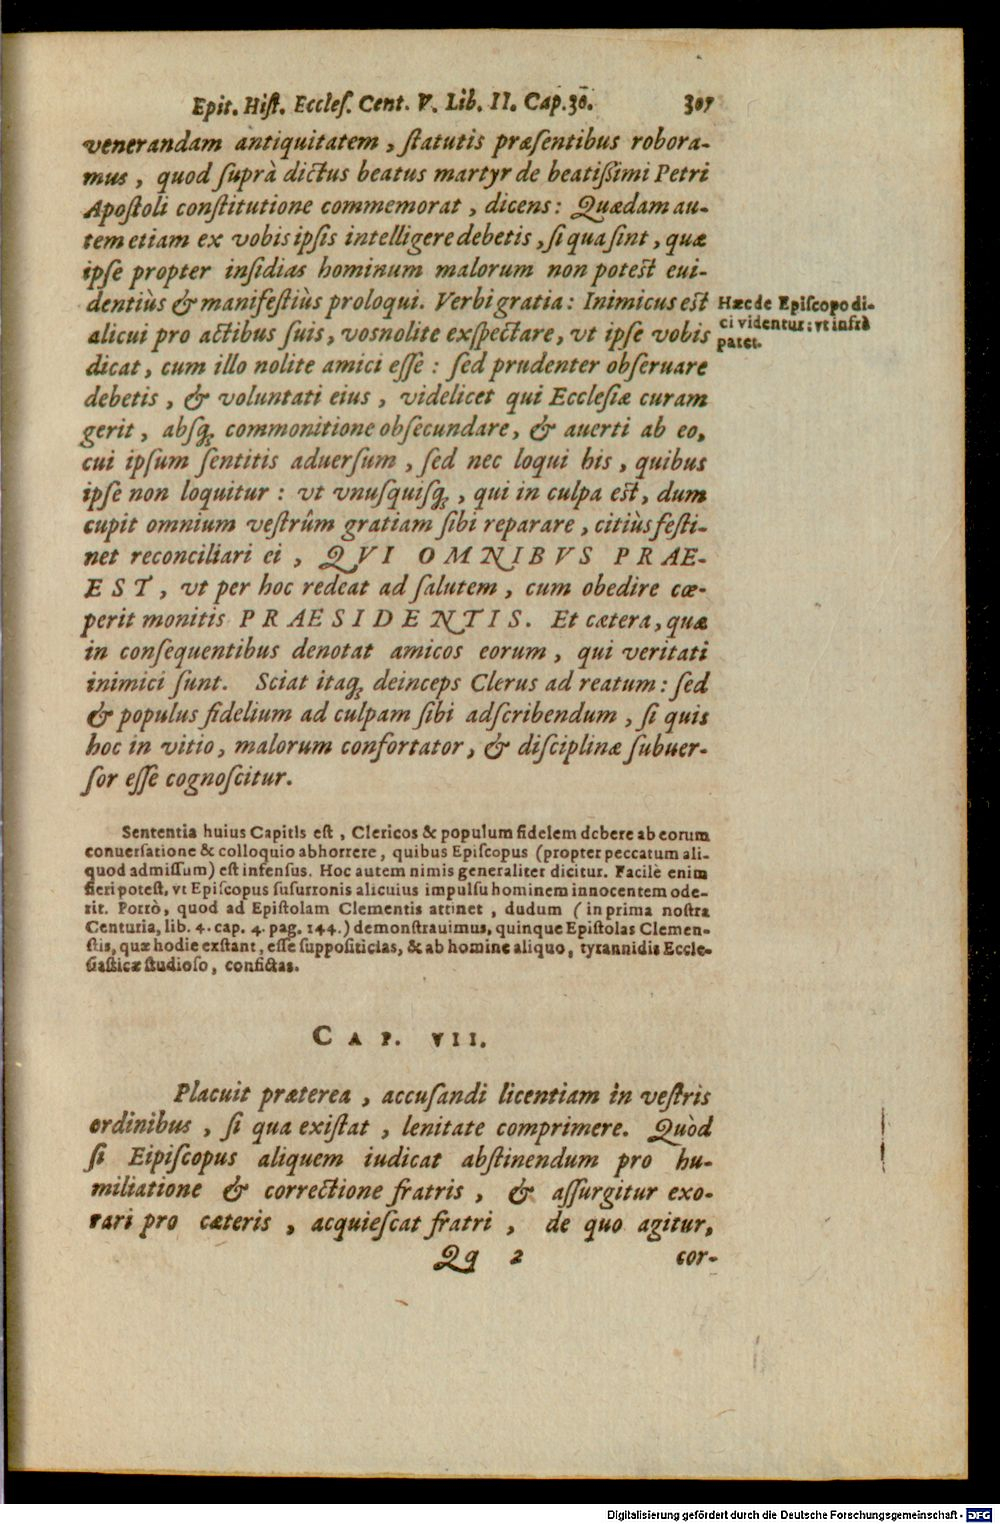 Epit. Hiſt. Eccleſ. Cent. V. Lib. II. Cap. 30. 307
venerandam antiquitatem, ſtatutis præſentibus robora-
mus, quod ſuprà dictus beatus martyr de beatißimi Petri
Apoſtoli conſtitutione commemorat, dicens: Quædam au-
tem etiam ex vobis ipſis intelligere debetis, ſi qua ſint, quæ
ipſe propter inſidias hominum malorum non poteſt eui-
dentiùs & manifeſtiùs proloqui. Verbi gratia: Inimicus eſt
alicui pro actibus ſuis, vos nolite exſpectare, vt ipſe vobis
dicat, cum illo nolite amici eſſe: ſed prudenter obſeruare
debetis, & voluntati eius, videlicet qui Eccleſiæ curam
gerit, abſq; commonitione obſecundare, & auerti ab eo,
cui ipſum ſentitis aduerſum, ſed nec loqui his, quibus
ipſe non loquitur: vt vnuſquiſq;, qui in culpa eſt, dum
cupit omnium veſtrûm gratiam ſibi reparare, citiùs feſti-
net reconciliari ei, QVI OMNIBVS PRAE-
EST, vt per hoc redeat ad ſalutem, cum obedire cœ-
perit monitis PRAESIDENTIS. Et cætera, quæ
in conſequentibus denotat amicos eorum, qui veritati
inimici ſunt. Sciat itaq; deinceps Clerus ad reatum: ſed
& populus fidelium ad culpam ſibi adſcribendum, ſi quis
hoc in vitio, malorum confortator, & diſciplinæ ſubuer-
ſor eſſe cognoſcitur.
Hæc de Epiſcopo di-
ci videntur: vt infrà
patet.
Sententia huius Capitis eſt, Clericos & populum fidelem debere ab eorum
conuerſatione & colloquio abhorrere, quibus Epiſcopus (propter peccatum ali-
quod admiſſum) eſt infenſus. Hoc autem nimis generaliter dicitur. Facilè enim
fieri poteſt, vt Epiſcopus ſuſurronis alicuius impulſu hominem innocentem ode-
rit. Porrò, quod ad Epiſtolam Clementis attinet, dudum (in prima noſtra
Centuria, lib. 4. cap. 4. pag. 144.) demonſtrauimus, quinque Epiſtolas Clemen-
tis, quæ hodie exſtant, eſſe ſuppoſiticias, & ab homine aliquo, tyrannidis Eccle-
ſiaſticæ ſtudioſo, confictas.
CAP. VII.
Placuit præterea, accuſandi licentiam in veſtris
ordinibus, ſi qua exiſtat, lenitate comprimere. Quòd
ſi Eipiſcopus aliquem iudicat abſtinendum pro hu-
miliatione & correctione fratris, & aſſurgitur exo-
rari pro cæteris, acquieſcat fratri, de quo agitur,
Qq 2 cor-
Digitalisierung gefördert durch die Deutsche Forschungsgemeinschaft - DFG